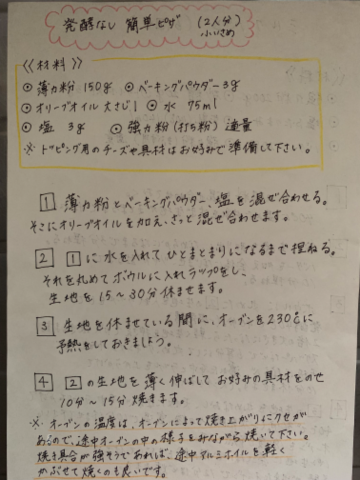 発酵なし 簡単ピザ (2人分)
小さめ
《材料》
◎ 薄力粉 150g ◎ ベーキングパウダー 3g
◎ オリーブオイル 大さじ1 ◎ 水 75ml
◎ 塩 3g ◎ 強力粉(打ち粉) 適量
※ トッピング用のチーズや具材はお好みで準備して下さい。
1 薄力粉とベーキングパウダー、塩を混ぜ合わせる。
そこにオリーブオイルを加え、さっと混ぜ合わせます。
2 1に水を入れてひとまとまりになるまで捏ねる。
それを丸めてボウルに入れラップをし、
生地を15〜30分休ませます。
3 生地を休ませている間に、オーブンを230℃に
予熱をしておきましょう。
4 2の生地を薄く伸ばしてお好みの具材をのせ
10分〜15分焼きます。
※ オーブンの温度は、オーブンによって焼き上がりにクセが
あるので、途中オーブンの中の様子をみながら焼いて下さい。
焼き具合が強そうであれば、途中アルミホイルを軽く
かぶせて焼くのも良いです。